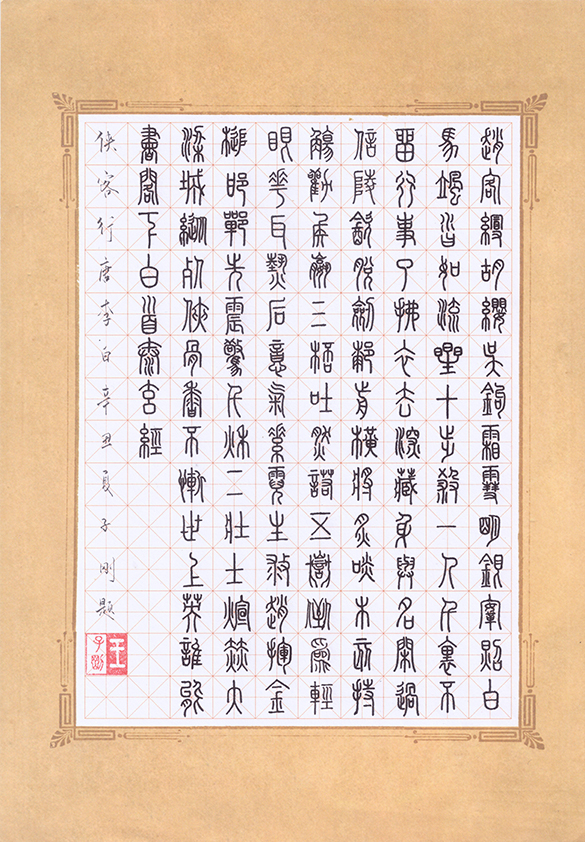 趙客縵胡纓吳鉤霜雪明銀鞍照白
馬颯沓如流星十步殺一人千裏不
留行事了拂衣去深藏身與名閑過
信陵飲脫劍膝前橫將炙啖朱亥持
觴勸侯嬴三杯吐然諾五嶽倒爲輕
眼花耳熱后意氣素霓生救趙揮金
槌邯鄲先震驚千秋二壯士烜赫大
梁城縱死俠骨香不慚世上英誰能
書閣下白首太玄經
俠客行唐李白辛丑夏子刚題
王子剛